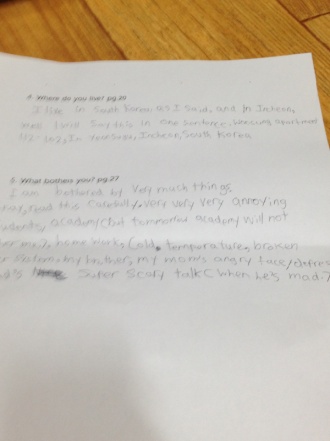 4. Where do you live? pg.20
I live in South Korea as I said, and in Incheon,
well I will say this in one sentence. apartment
112-102, In Yeonsugu, Incheon, South Korea
5. What bothers you? pg.27
I am bothered by very much things,
read this carefully. very very very annoying
academy(but tommorow academy will not
home works, cold temperature, broken
system, my brother, my mom's angry face/
super scary talk(when he's mad.)